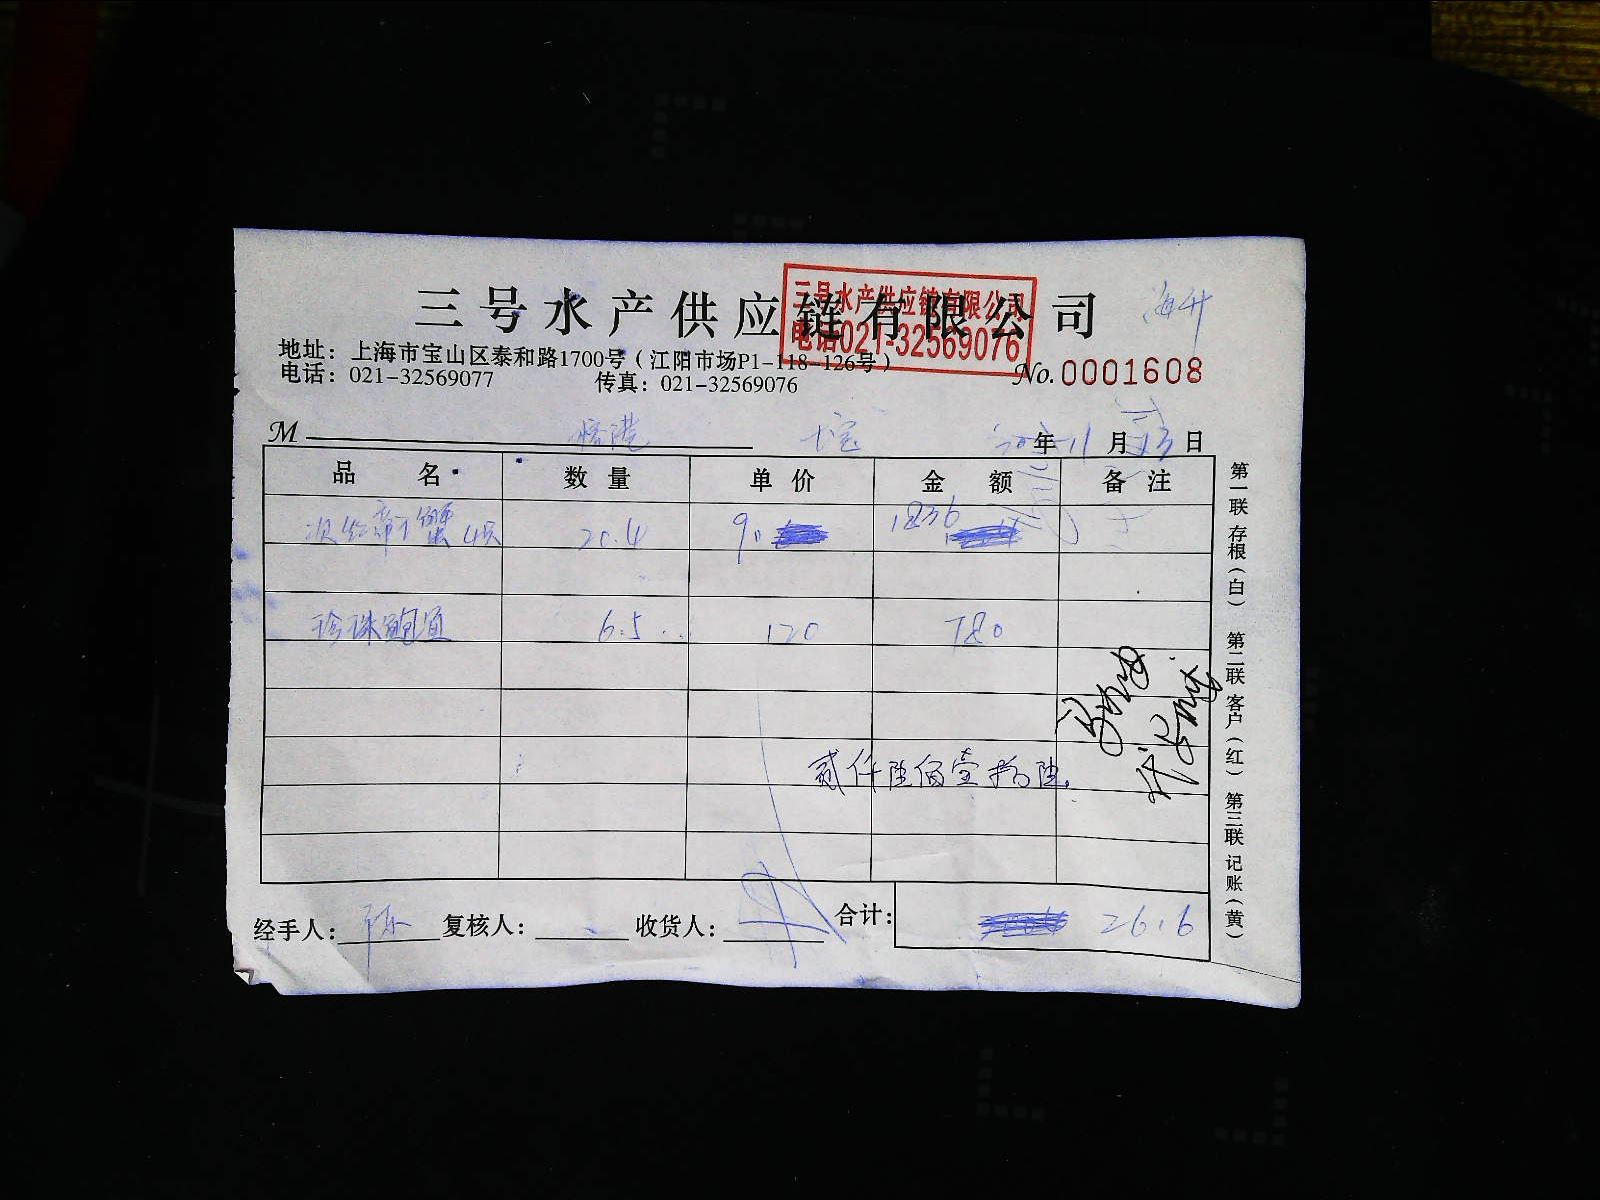 三号水产供应链有限公司
三号水产供应链有限公司
电话021-32569076
地址：上海市宝山区泰和路1700号（江阳市场P1-118-126号）
电话：021-32569077 传真：021-32569076
No.0001608
M 年11月23日
品名 数量 单价 金额 备注
帝王蟹 20.4 90 1836
珍珠鲍 6.5 120 780
贰仟陆佰壹拾陆
经手人： 复核人： 收货人： 合计： 2616
第一联存根（白） 第二联客户（红） 第三联记账（黄）